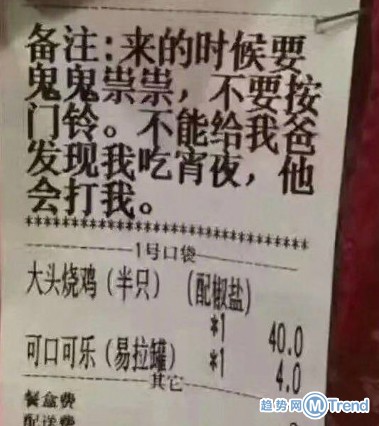 备注:来的时候要
鬼鬼祟祟，不要按
门铃。不能给我爸
发现我吃宵夜，他
会打我。
********************************
1号口袋
大头烧鸡（半只）（配椒盐）
*1 40.0
可口可乐（易拉罐） *1 4.0
其它
餐盒费
配送费
趋势网 M Trend